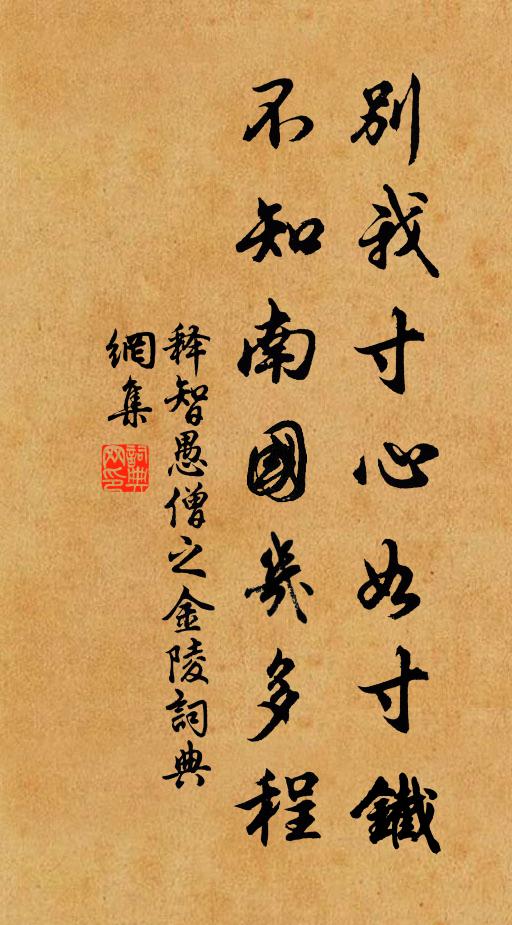 别我寸心如寸鐵
不知南國幾多程
释智愚僧之金陵詞典
網集
詞典
网印